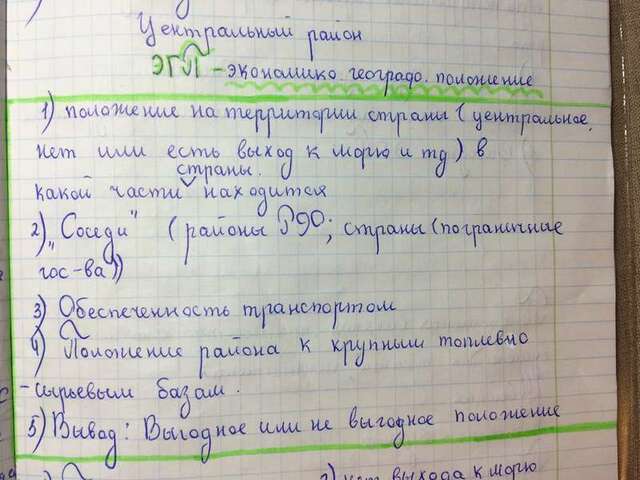 Центральный район
ЭГП - экономико. географо. положение
1) положение на территории страны (центральное,
нет или есть выход к морю и тд) в
страны.
какой части находится
2) "Соседи" (районы РФ; страны (пограничные
гос-ва))
3) Обеспеченность транспортом
4) Положение района к крупным топливно
-сырьевым базам.
5) Вывод: Выгодное или не выгодное положение
нет выхода к морю